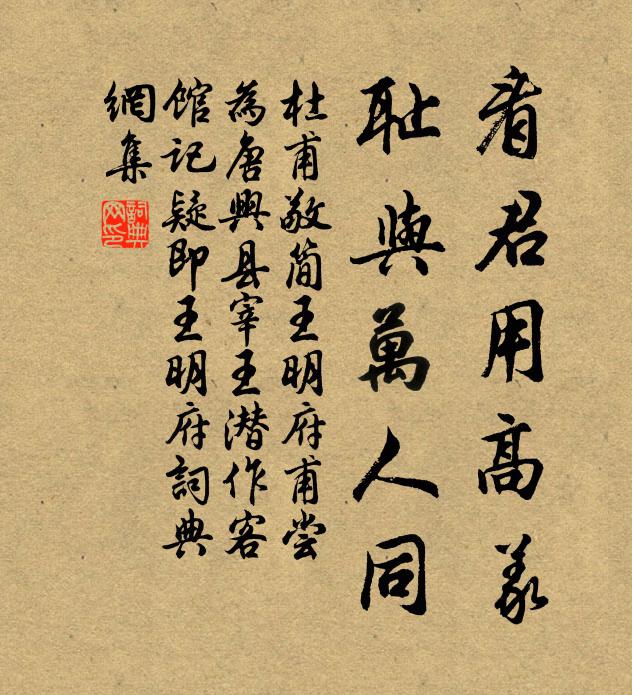 看君用高義
耻與萬人同
杜甫敬簡王明府甫尝
為唐興县宰王潜作客
館记疑即王明府詞典
網集
詞典
网印